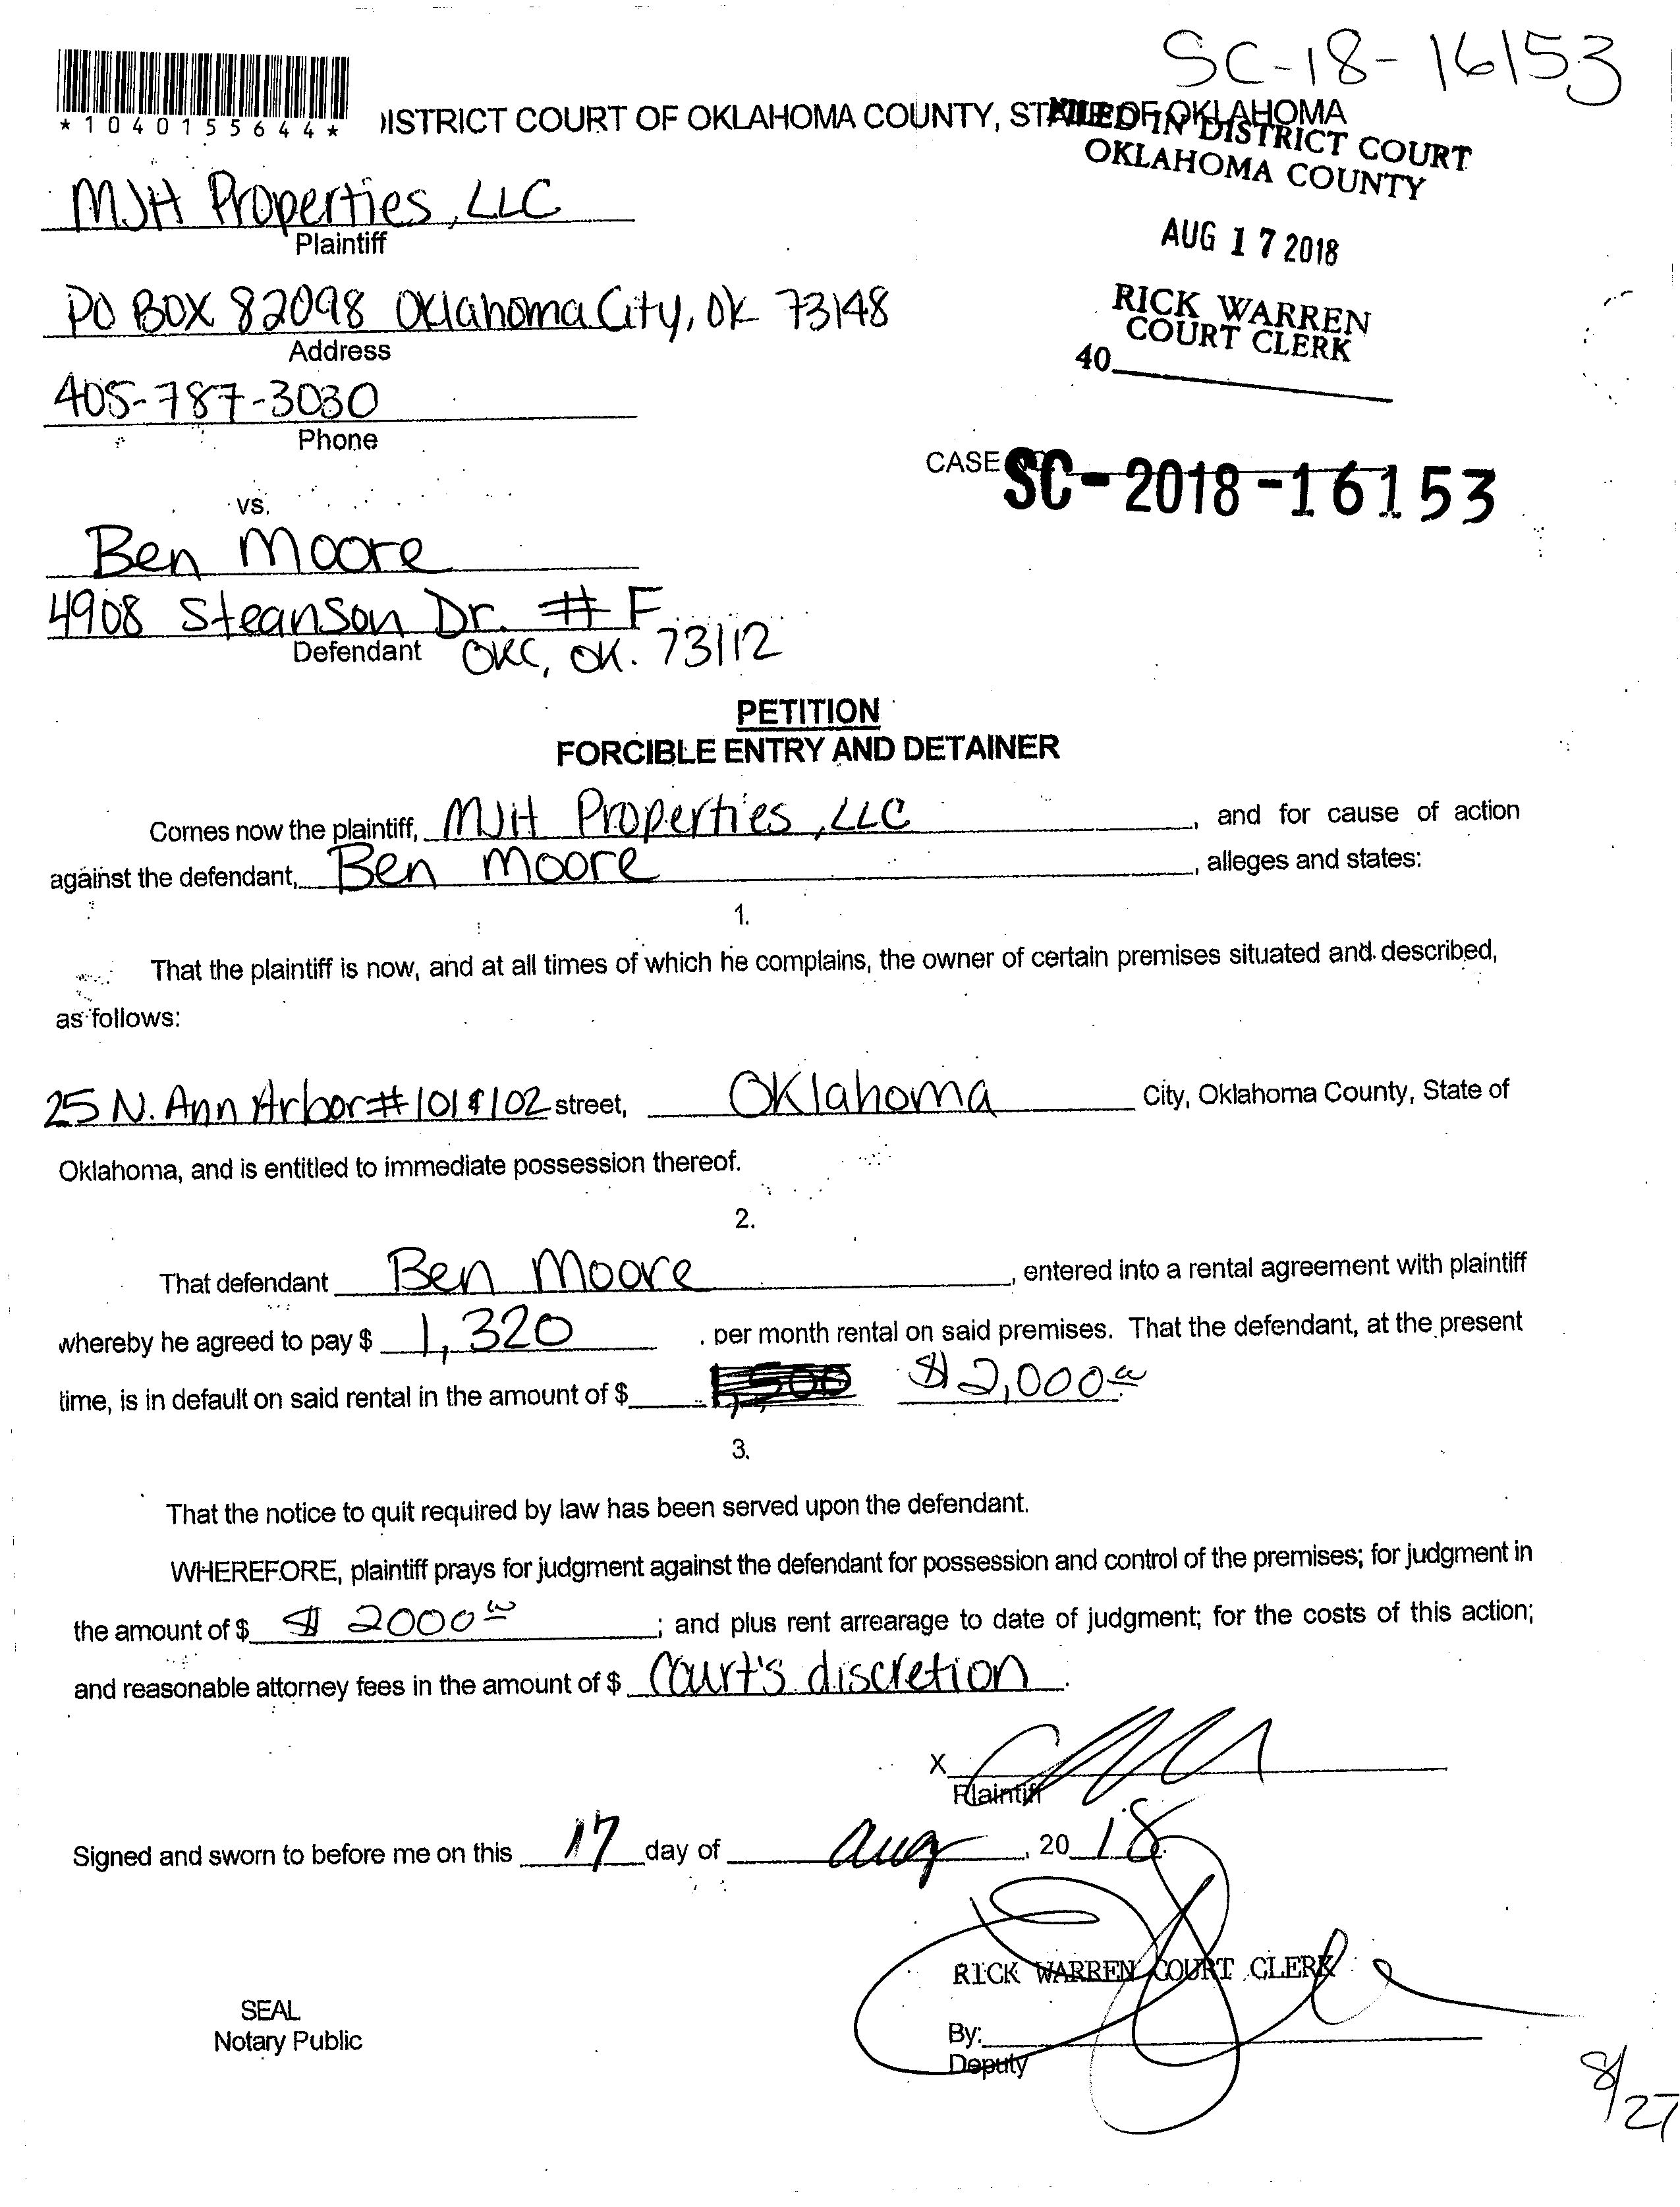 SC-18-16153
*1040155644*
DISTRICT COURT OF OKLAHOMA COUNTY, STATE OF OKLAHOMA
FILED IN DISTRICT COURT
OKLAHOMA COUNTY
MJH Properties, LLC
Plaintiff
AUG 17 2018
PO BOX 82098 Oklahoma City, OK 73148
Address
RICK WARREN
COURT CLERK
40
405-787-3030
Phone
CASE NO. SC-2018-16153
vs.
Ben Moore
4908 Steanson Dr. # F
Defendant OKC, OK. 73112
PETITION
FORCIBLE ENTRY AND DETAINER
Comes now the plaintiff, MJH Properties, LLC, and for cause of action
against the defendant, Ben Moore, alleges and states:
1.
That the plaintiff is now, and at all times of which he complains, the owner of certain premises situated and described,
as follows:
25 N. Ann Arbor #101 & 102 street, Oklahoma City, Oklahoma County, State of
Oklahoma, and is entitled to immediate possession thereof.
2.
That defendant Ben Moore, entered into a rental agreement with plaintiff
whereby he agreed to pay $ 1,320. per month rental on said premises. That the defendant, at the present
time, is in default on said rental in the amount of $ 1,500 $2,000.00
3.
That the notice to quit required by law has been served upon the defendant.
WHEREFORE, plaintiff prays for judgment against the defendant for possession and control of the premises; for judgment in
the amount of $ $ 2000.00; and plus rent arrearage to date of judgment; for the costs of this action;
and reasonable attorney fees in the amount of $ Court's discretion.
X
Plaintiff
Signed and sworn to before me on this 17 day of Aug, 20 18
RICK WARREN COURT CLERK
SEAL
Notary Public
By:
Deputy
8/27